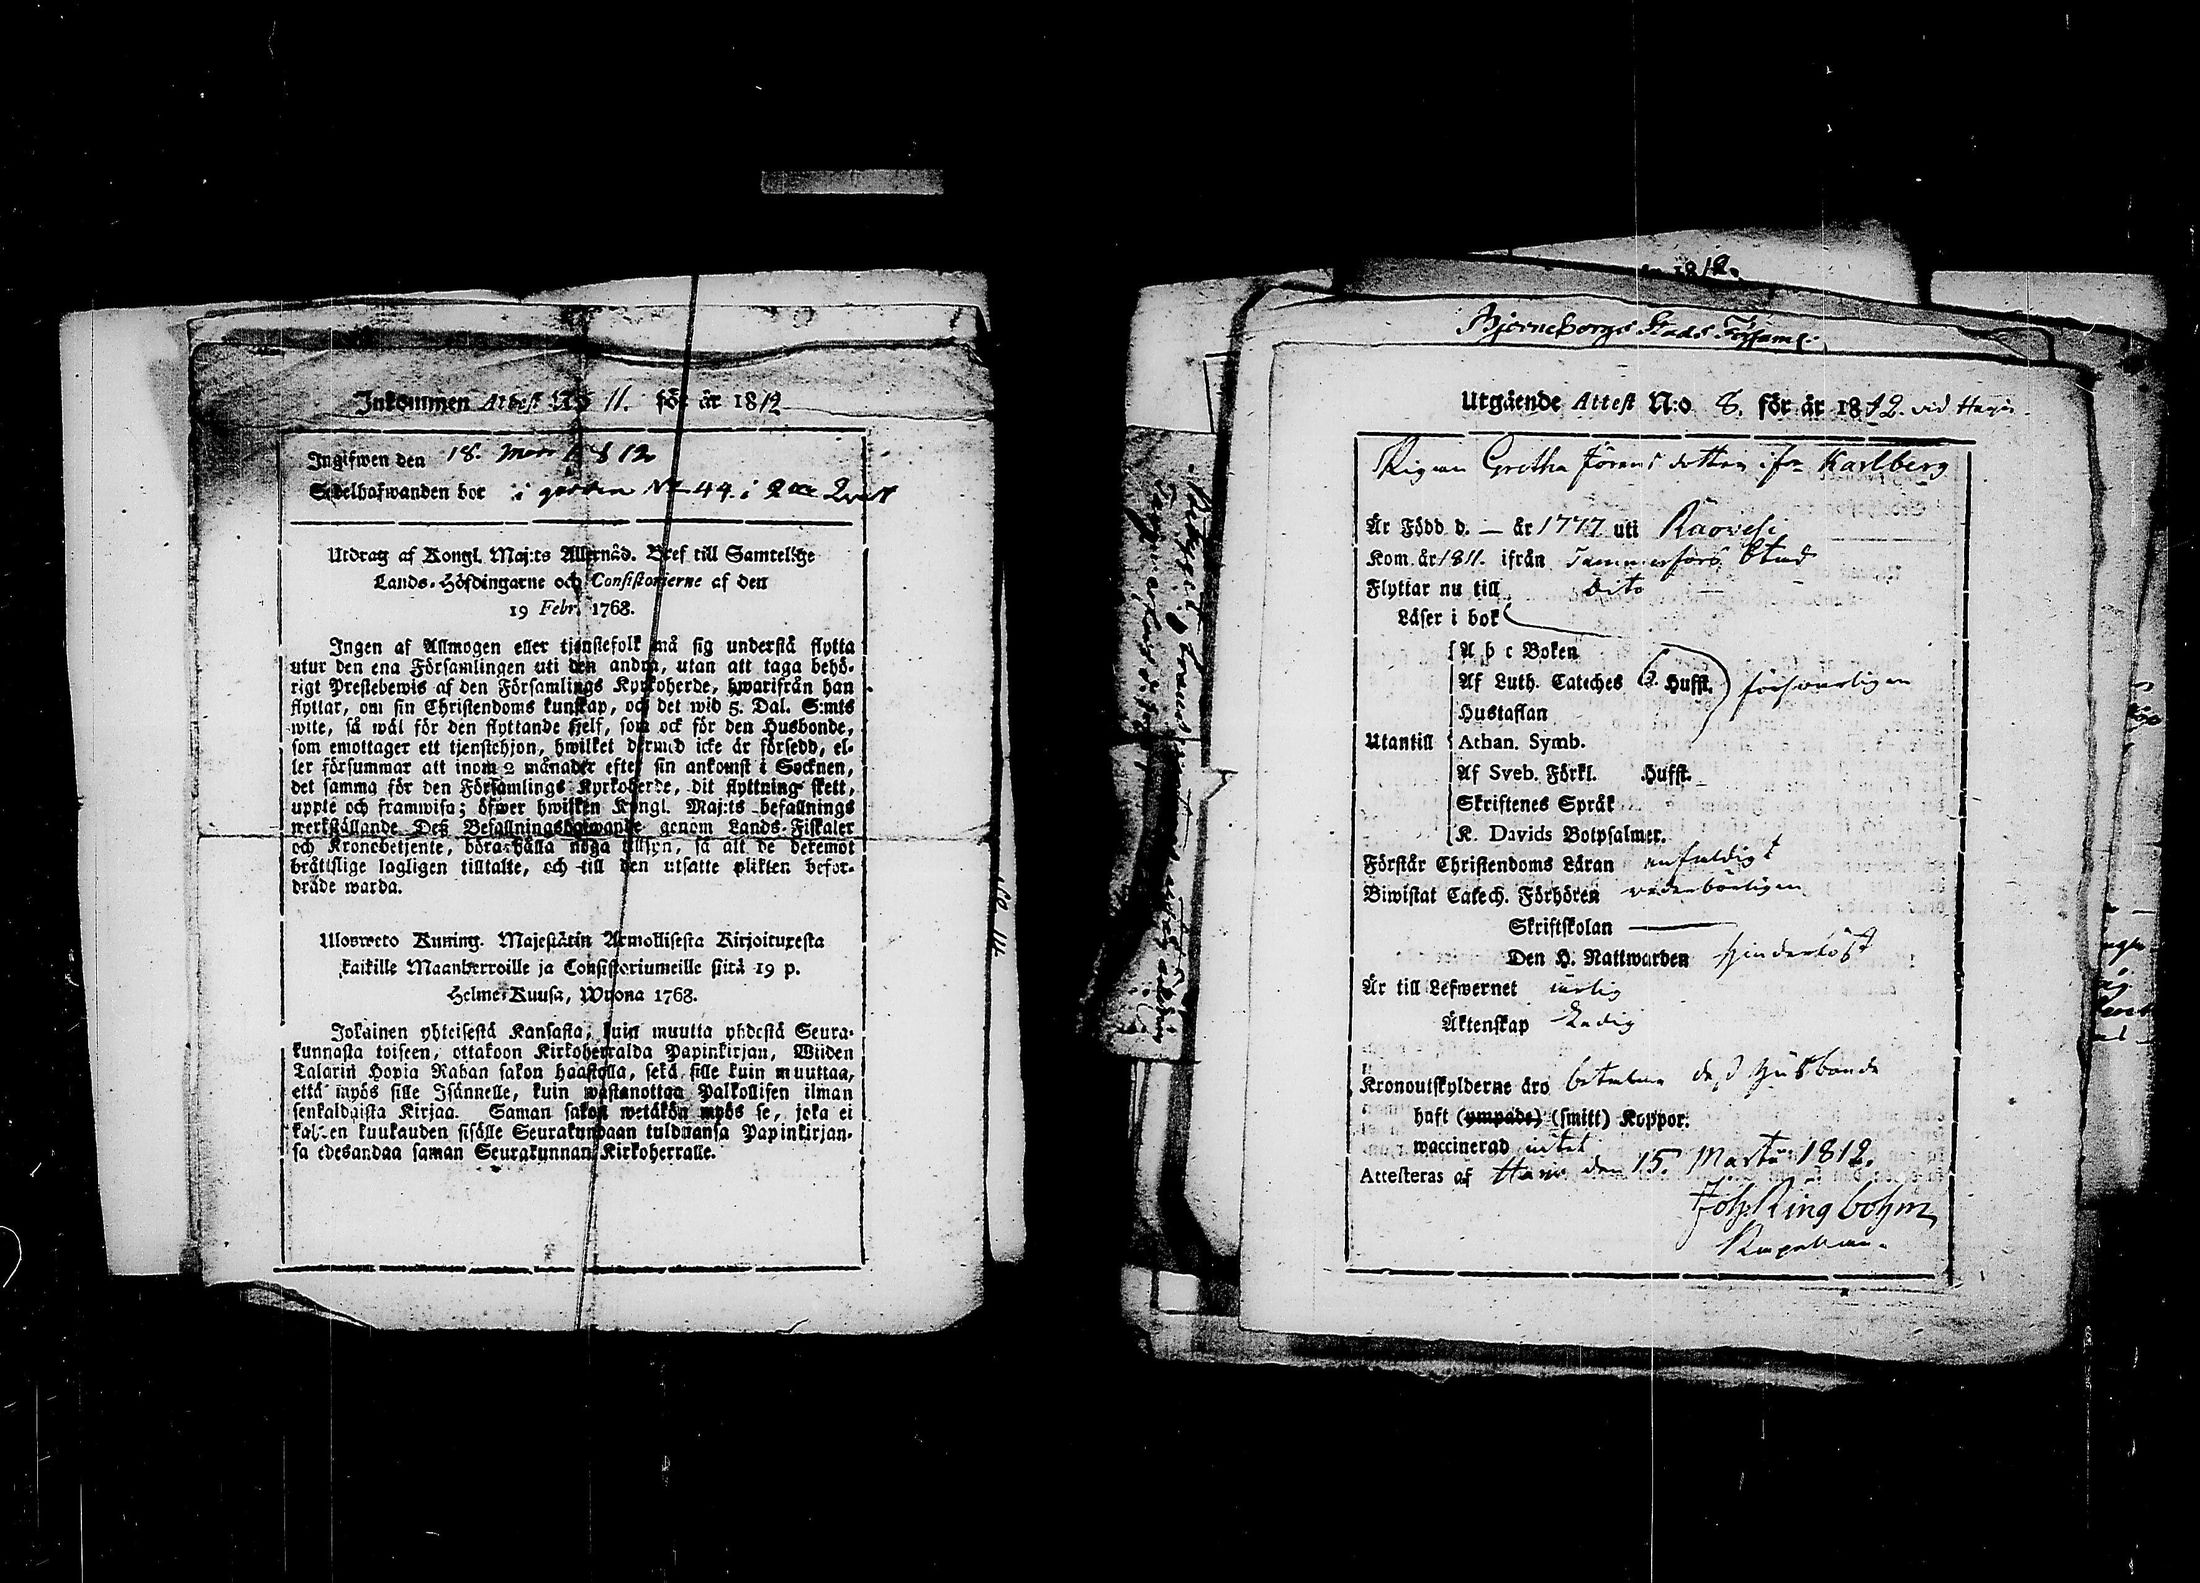 Inkommen Attest N:o 11. för år 1812
Ingifwen den 18. Mars 1812
Sedelhafwanden bor i gården No 44. i 2dra Qvart
Utdrag af Kongl. Maj:ts Allernåd. Bref till Samtelige
Lands-Höfdingarne och Consistorierne af den
19 Febr. 1768.
Ingen af Allmogen eller tjenstefolk må sig understå flytta
utur den ena Församlingen uti den andra, utan att taga behö-
rigt Prestebewis af den Församlings Kyrkoherde, hwarifrån han
flyttar, om sin Christendoms kunskap, och det wid 5. Dal. S:mts
wite, så wäl för den flyttande sjelf, som ock för den Husbonde,
som emottager ett tjenstehjon, hwilket dermed icke är försedd, el-
ler försummar att inom 2 månader efter sin ankomst i Socknen,
det samma för den Församlings Kyrkoherde, dit flyttning skett,
uppte och framwisa; öfwer hwilken Kongl. Maj:ts befallnings
werkställande Deß Befallningshafwande genom Lands-Fiskaler
och Kronobetjente, böra hålla noga tillsyn, så att de deremot
brätslige lagligen tilltalte, och till den utsatte plikten befor-
dräde warda.
Ulosweto Kuning. Majestätin Armollisesta Kirjoituxesta
kaikille Maanherroille ja Consistoriumeille siitä 19 p.
Helme-Kuusa, Wuona 1768.
Jokainen yhteisestä Kansasta, kuin muutta yhdestä Seura-
kunnasta toiseen, ottakoon Kirkoherralda Papinkirjan, Wiiden
Talarin Hopia Rahan sakon haastolla, sekä sille kuin muuttaa,
että myös sille Isännelle, kuin wastanottaa Palkollisen ilman
senkaldaista Kirjaa. Saman sakon wetäkön myös se, joka ei
kahden kuukauden sisälle Seurakundaan tulduansa Papinkirjan-
sa edesandaa saman Seurakunnan Kirkoherralle.
1812.
Björneborgs Stads Församl.
Utgående Attest N:o 8. för år 1812. vid
Pigan Gretha Jörans dotter ifrån Karlberg
Är Född d. — år 1777 uti
Kom år 1811. ifrån Tammerfors Stad
Flyttar nu till Dito
Läser i bok
A b c Boken
Af Luth. Cateches Hufst. försvarligen
Hustaflan
Utantill Athan. Symb.
Af Sveb. Förkl. Hufst.
Skriftenes Språk
K. Davids Botpsalmer.
Förstår Christendoms Läran enfaldigt
Biwistat Catech. Förhören vederbörligen
Skriftskolan —
Den H. Nattwarden hinderlöst
Är till Lefwernet ärlig
Äktenskap Ledig
Kronoutskylderne äro betalna des husbonde
haft (ympade) (smitt) Koppor.
waccinerad intet
Attesteras af den 15. Martii 1812.
Joh. Ringbohm
Kapellan.